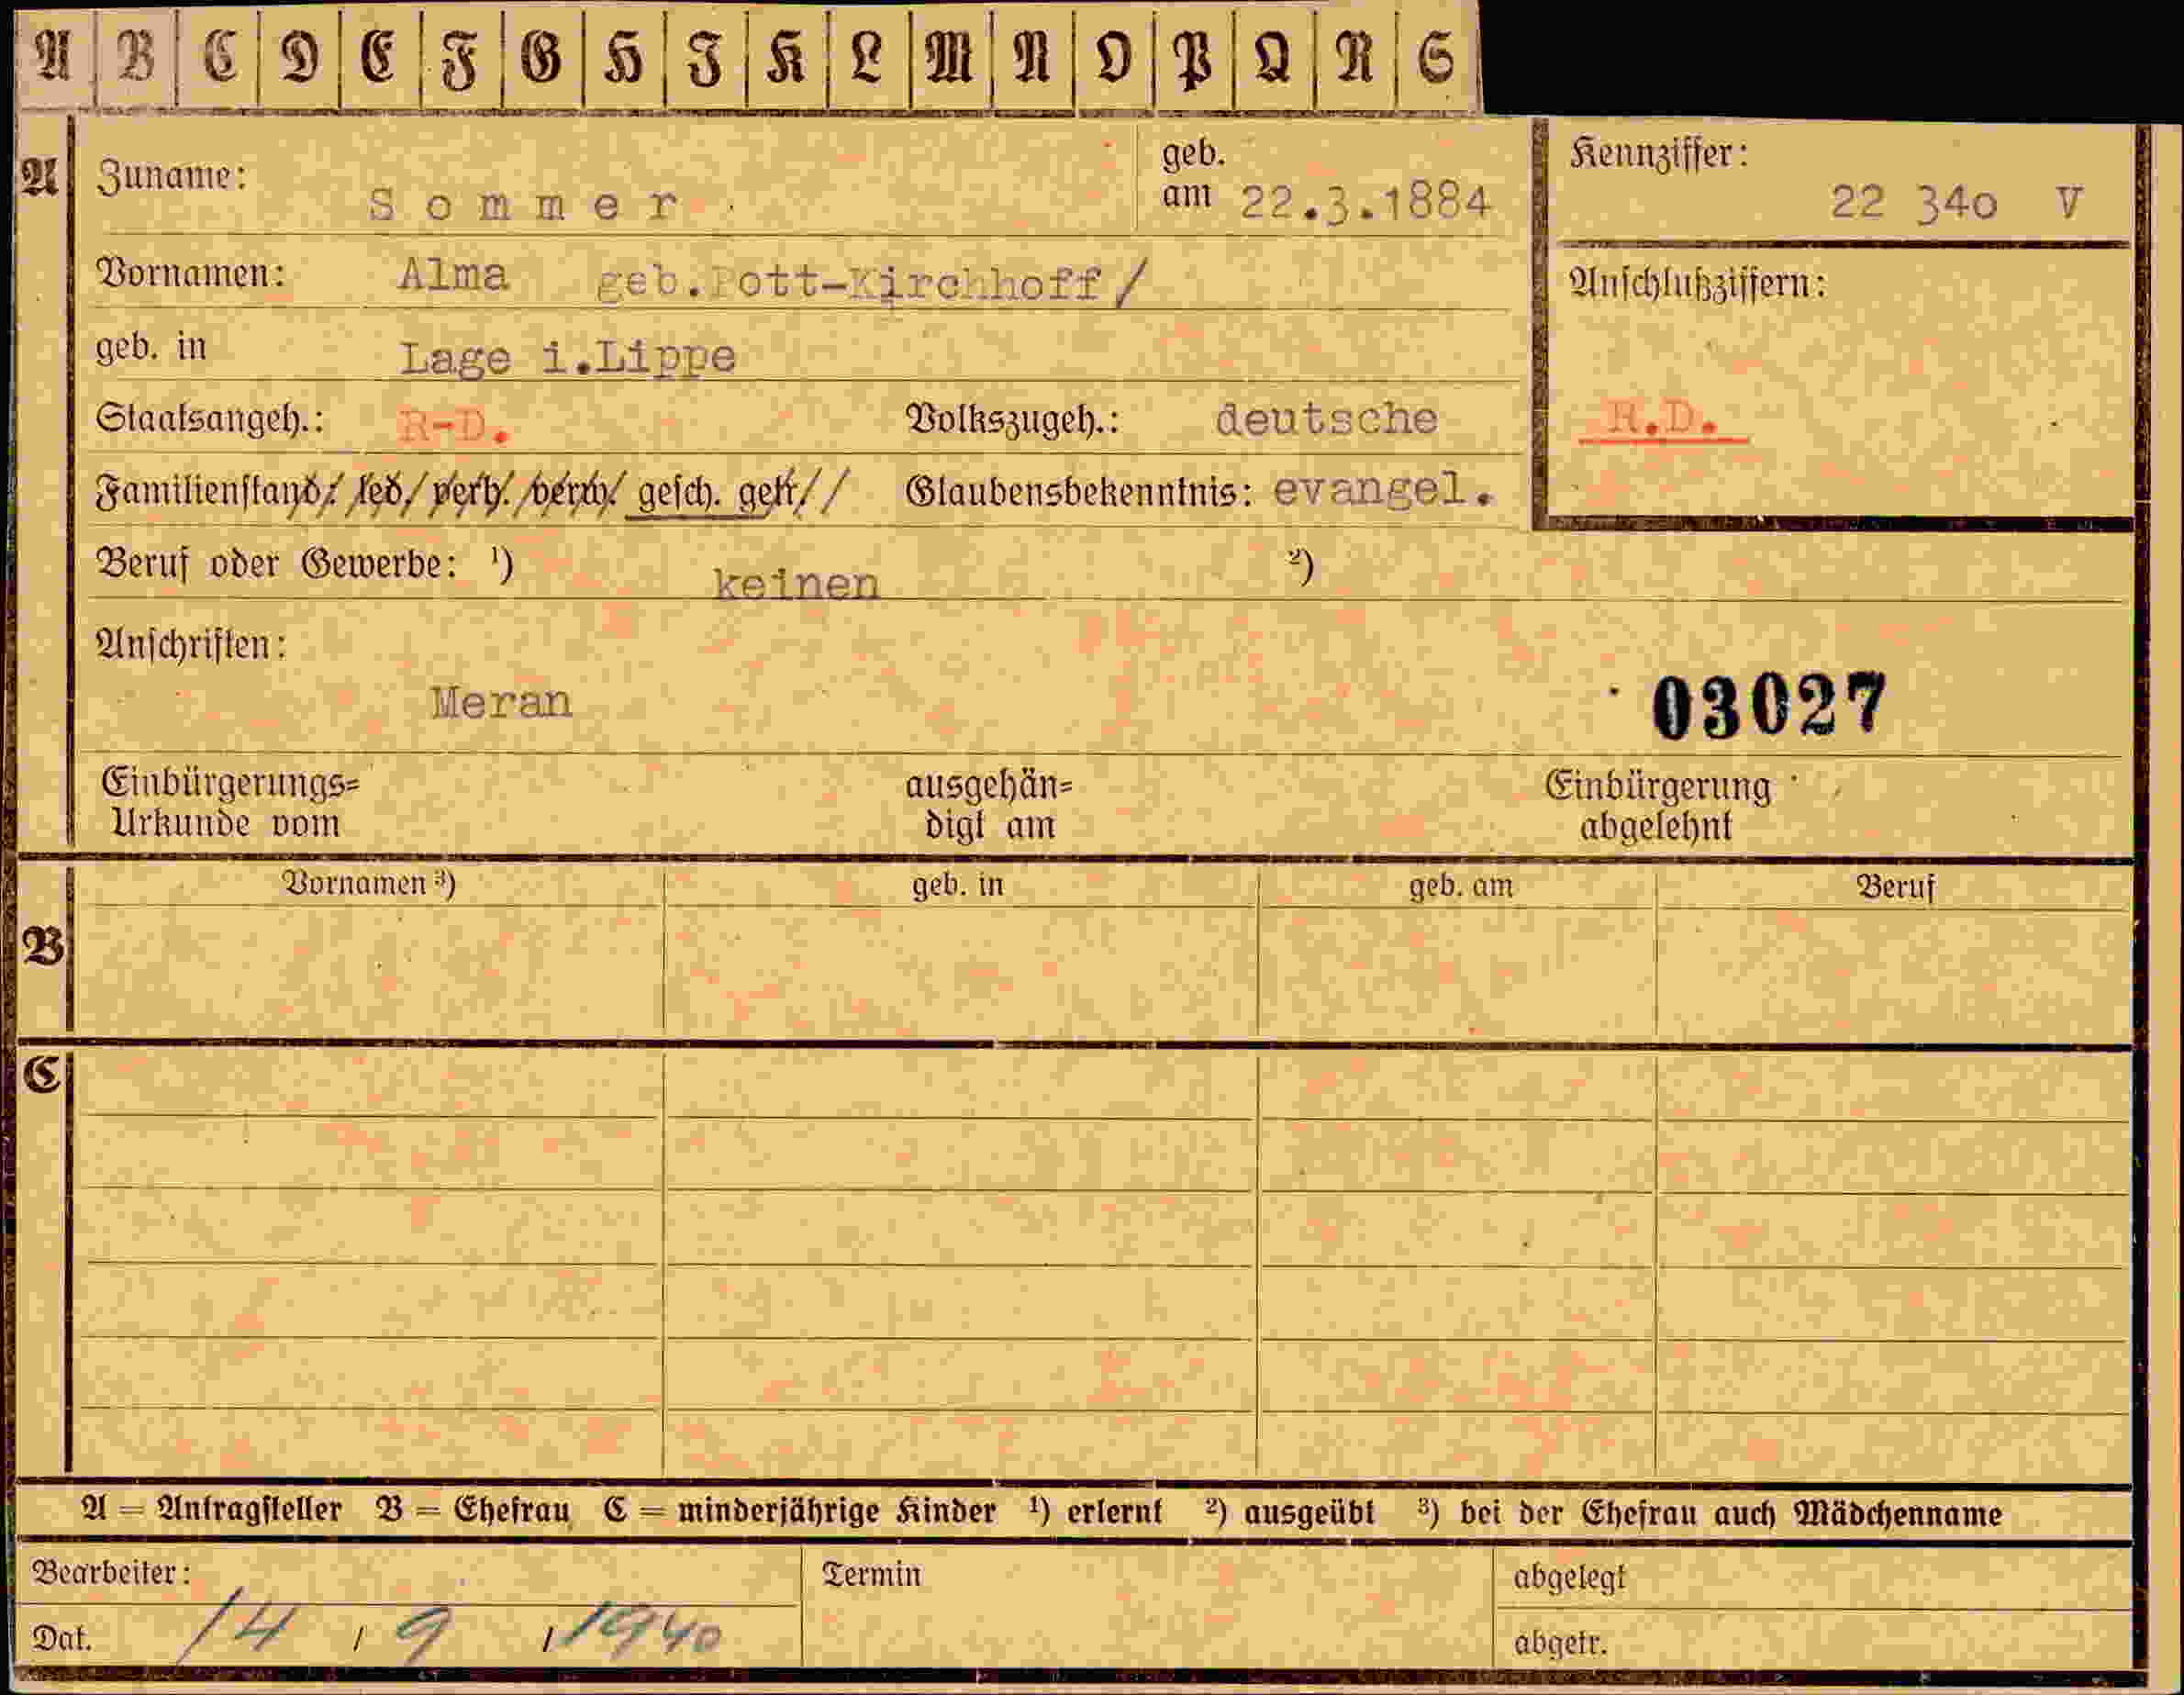 A B C D E F G H I K L M N O P Q R S
A Zuname: Sommer geb. am 22.3.1884 Kennziffer: 22 340 V
Vornamen: Alma geb.Pott-Kirchhoff/ Anschlußziffern:
geb. in Lage i.Lippe
Staatsangeh.: R-D. Volkszugeh.: deutsche R.D.
Familienstand: led. verh. verw. gesch. getr. Glaubensbekenntnis: evangel.
Beruf oder Gewerbe: ¹) keinen ²)
Anschriften:
Meran 03027
Einbürgerungs= ausgehän= Einbürgerung
Urkunde vom digt am abgelehnt
Vornamen ³) geb. in geb. am Beruf
B
C
A = Antragsteller B = Ehefrau C = minderjährige Kinder ¹) erlernt ²) ausgeübt ³) bei der Ehefrau auch Mädchenname
Bearbeiter: Termin abgelegt
Dat. 14 / 9 / 1940 abgetr.